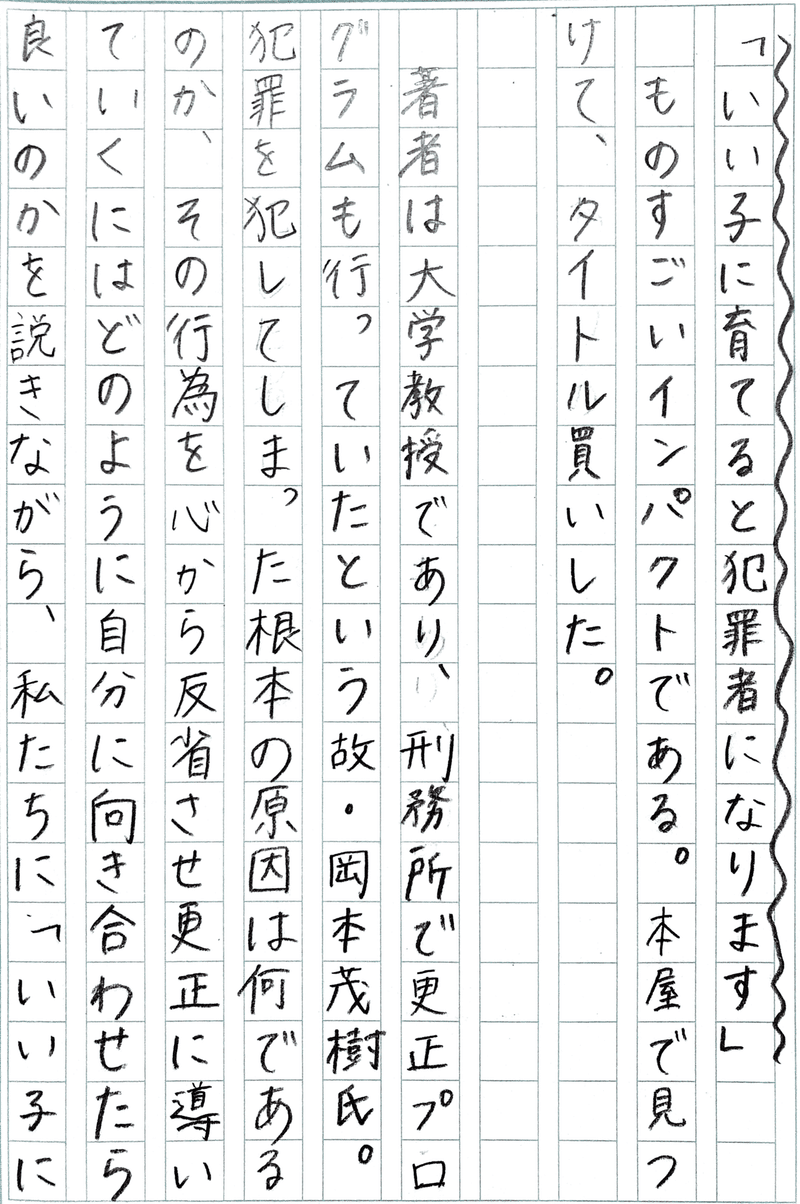 「いい子に育てると犯罪者になります」
ものすごいインパクトである。本屋で見つ
けて、タイトル買いした。
著者は大学教授であり、刑務所で更正プロ
グラムも行っていたという故・岡本茂樹氏。
犯罪を犯してしまった根本の原因は何である
のか、その行為を心から反省させ更正に導い
ていくにはどのように自分に向き合わせたら
良いのかを説きながら、私たちに「いい子に